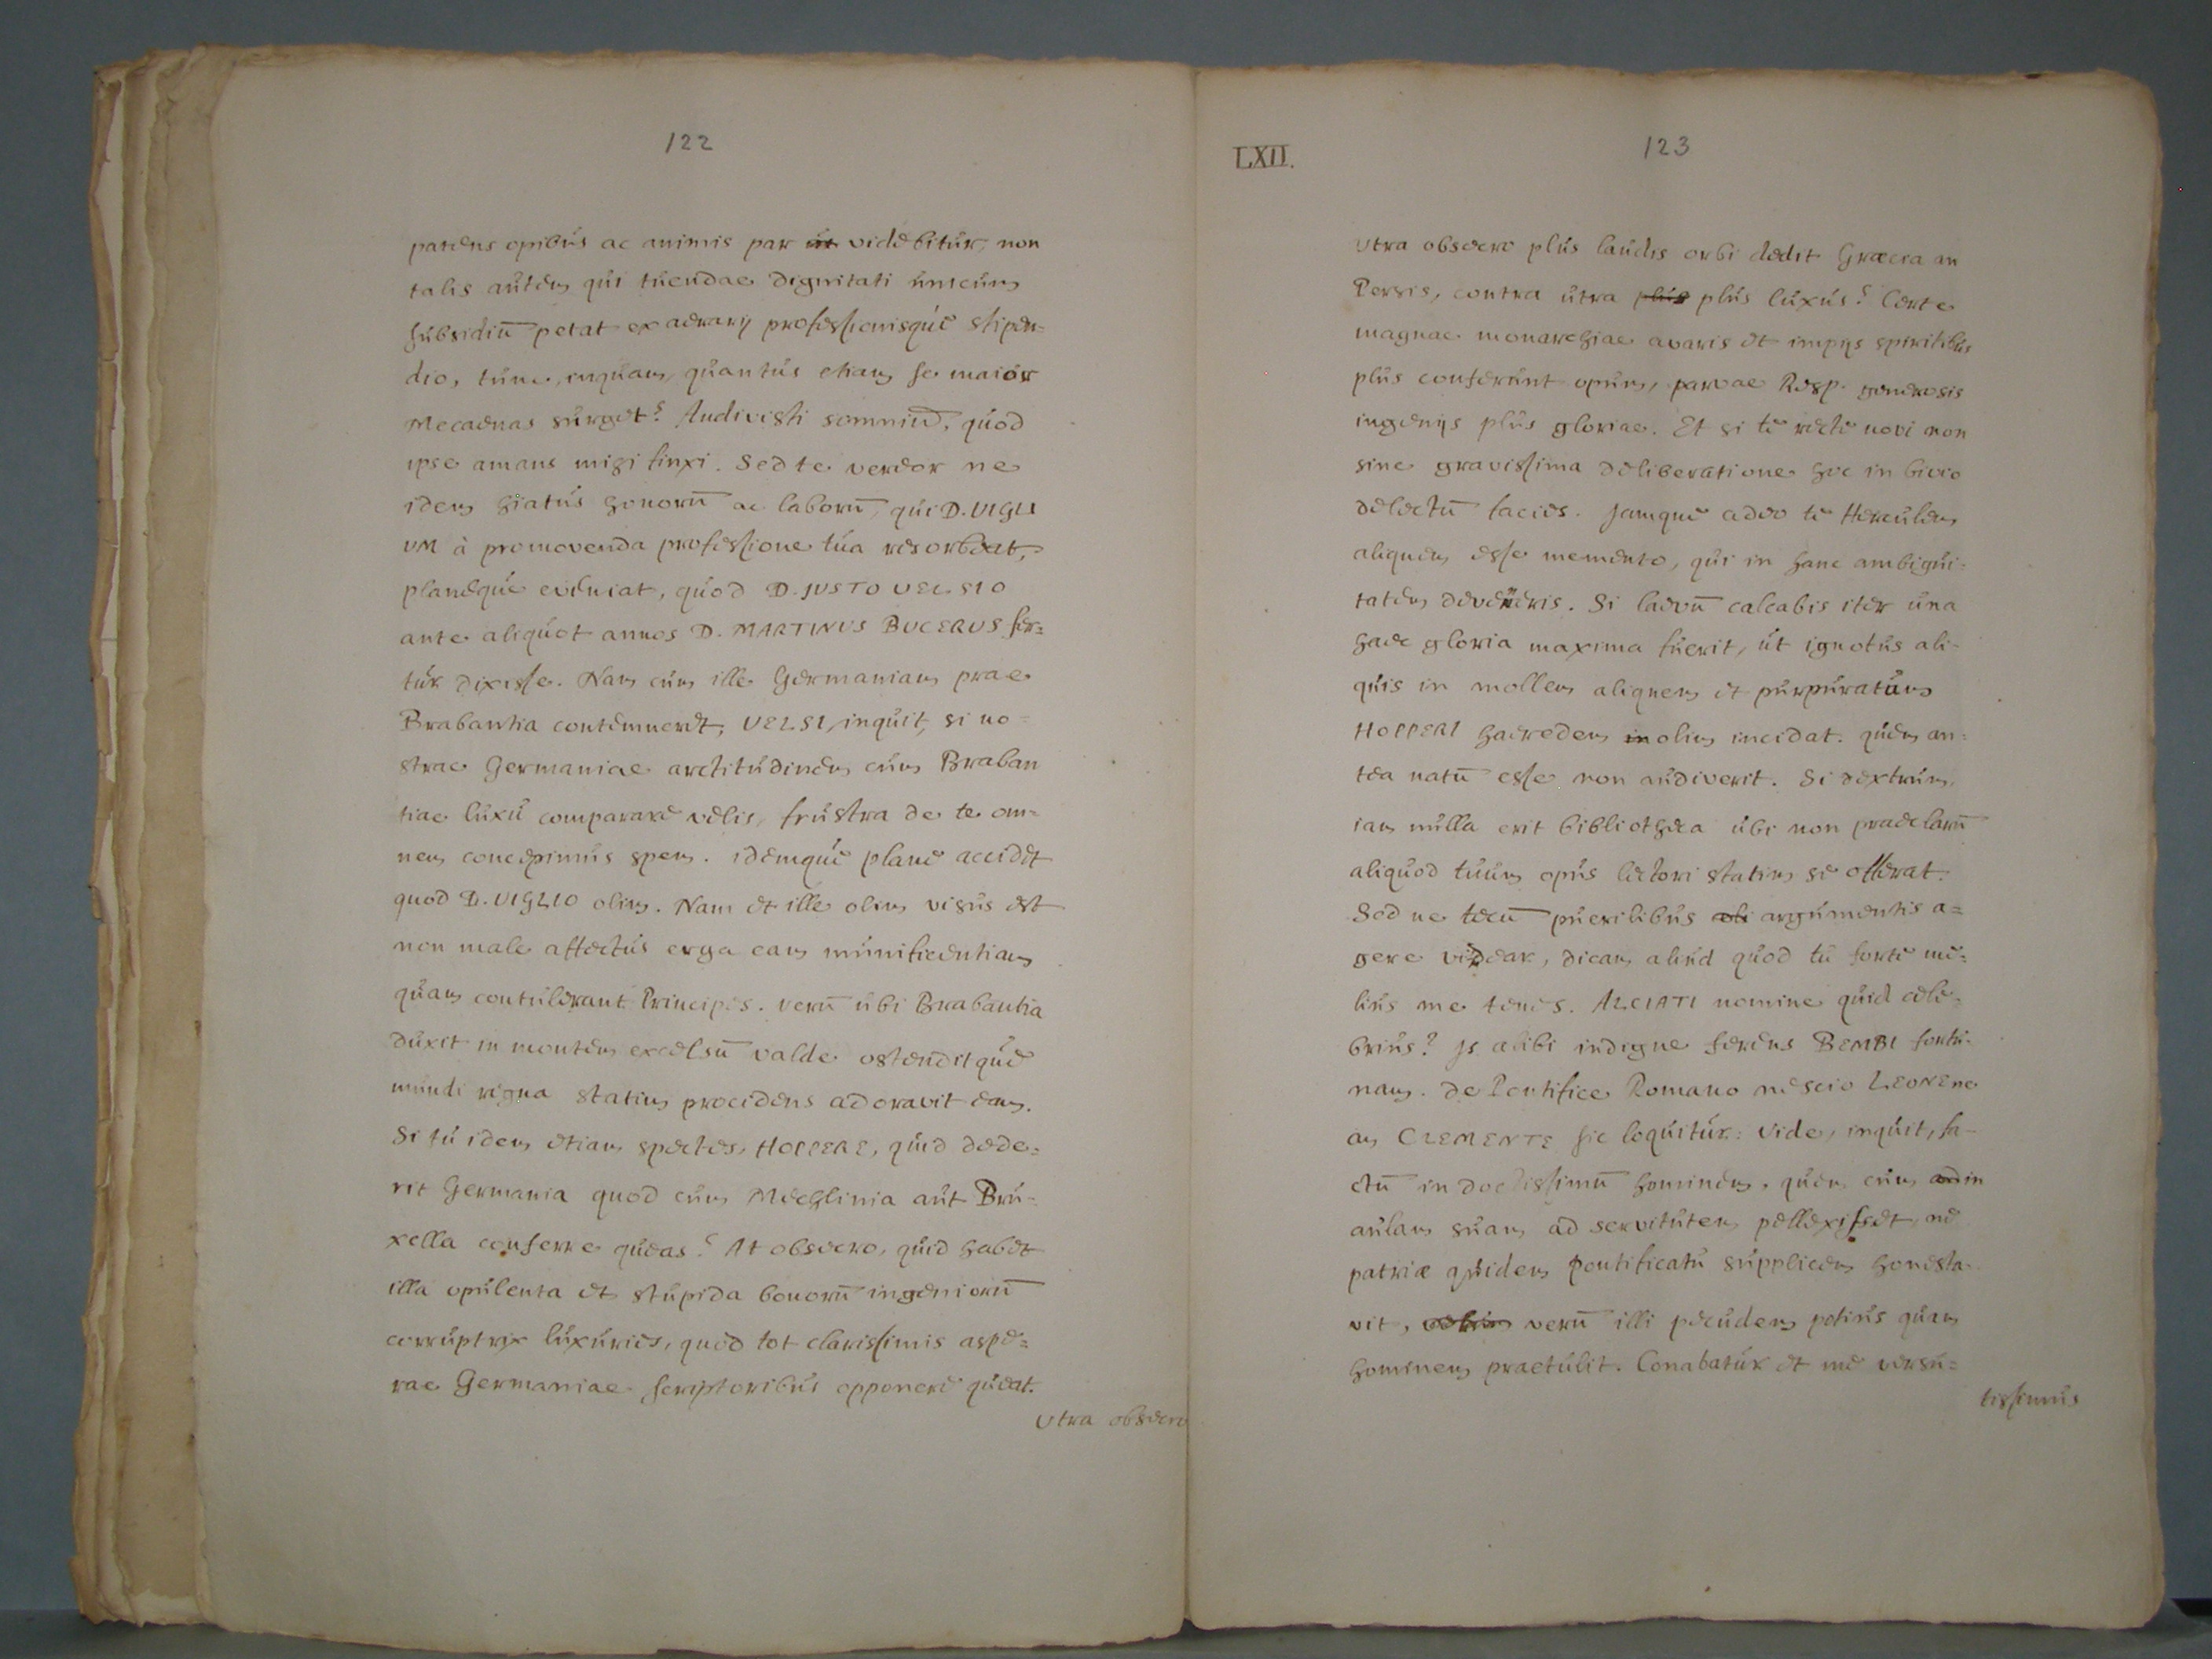 122
patens opibus ac animis par ut videbitur, non
talis autem qui tuendae dignitati unicum
subsidiū petat ex aerarij professionisque stipen=
dio, tunc, inquam, quantus etiam se maior
Mecaenas surget? Audivisti somniū, quod
ipse amans mihi finxi. Sed te vereor ne
idem hiatus honorū ac laborū, qui D. VIGLI
UM à promovenda professione tua resorbeat,
planeque eveniat, quod D. JUSTO VELSIO
ante aliquot annos D. MARTINUS BUCERUS fer=
tur dixisse. Nam cum ille Germaniam prae
Brabantia contemneret, VELSI, inquit, si no=
strae Germaniae arctitudinem cum Braban
tiae luxu comparare velis, frustra de te om=
nem concepimus spem. idemque plane accidet
quod D. VIGLIO olim. Nam et ille olim visus est
non male affectus erga eam munificentiam
quam contulerant Principes. verū ubi Brabantia
duxit in montem excelsū valde ostenditque
mundi regna statim procidens adoravit eam.
Si tu idem etiam spectes, HOPPERE, quid dede=
rit Germania quod cum Mechlinia aut Bru=
xella conferre queas? At obsecro, quid habet
illa opulenta et stupida bonorū ingeniorū
corruptrix luxuries, quod tot clarissimis aspe=
rae Germaniae scriptoribus opponere queat.
Utra obsecro
LXII.
123
Utra obsecro plus laudis orbi dedit Graecia an
Persis, contra utra plus plus luxus? Certe
magnae monarchiae avaris et impijs spiritibus
plus conferunt opum, parvae Resp. generosis
ingenijs plus gloriae. Et si te recte novi non
sine gravissima deliberatione hoc in bivio
delectū facies. Jamque adeo te Herculem
aliquem esse memento, qui in hanc ambigui=
tatem deveneris. Si laevū calcabis iter una
haec gloria maxima fuerit, ut ignotus ali=
quis in mollem aliquem et purpuratum
HOPPERI haeredem in olim incidat. quem an=
tea natū esse non audiverit. Si dextrum,
iam nulla erit bibliotheca ubi non praeclarū
aliquod tuum opus lectori statim se offerat.
Sed ne tecū puerilibus ali argumentis a=
gere videar, dicam aliud quod tu forte me=
lius me tenes. ALCIATI nomine quid cele=
brius? Js alibi indigne ferens BEMBI fortu=
nam. de Pontifice Romano nescio LEONE ne
an CLEMENTE sic loquitur: Vide, inquit, fa=
ctū in doctissimū hominem, quem cum ad in
aulam suam ad servitutem pellexisset, ne
patriæ quidem pontificatu supplicem honesta=
vit, verū illi pecudem potius quam
hominem praetulit. Conabatur et me versu=
tissimus